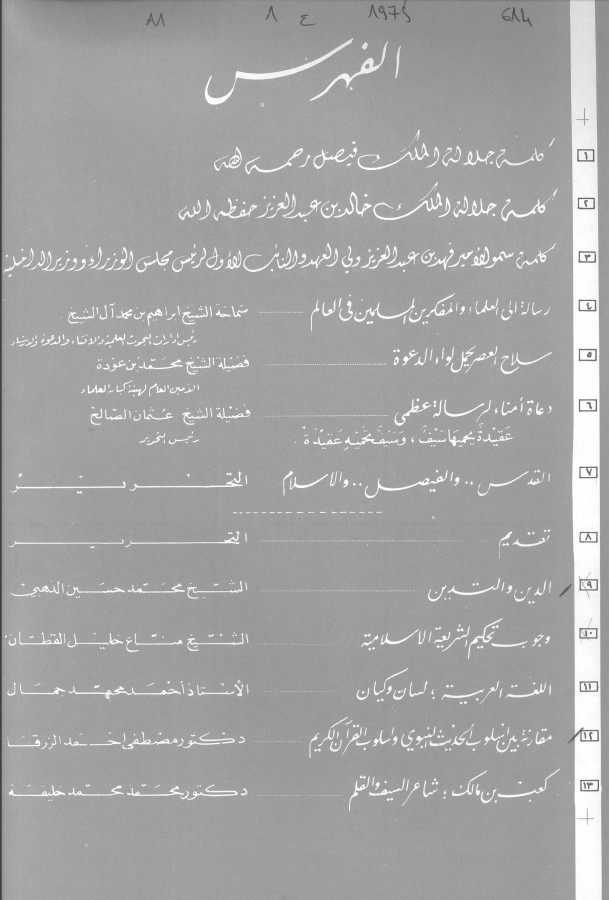 ٨١ ١ ع ١٩٧٥ ٦٨٤
الفهرس
١ كلمة جلالة الملك فيصل رحمه الله
٢ كلمة جلالة الملك خالد بن عبد العزيز حفظه الله
٣ كلمة سمو الأمير فهد بن عبد العزيز ولي العهد والنائب الأول لرئيس مجلس الوزراء ووزير الداخلية
٤ رسالة الى العلماء والمفكرين المسلمين فى العالم سماحة الشيخ ابراهيم بن محمد آل الشيخ
رئيس ادارات البحوث العلمية والافتاء والدعوة والارشاد
٥ سلاح العصر يحمل لواء الدعوة فضيلة الشيخ محمد بن عودة
الأمين العام لهيئة كبار العلماء
٦ دعاة أمناء لرسالة عظمى فضيلة الشيخ عثمان الصالح
عقيدة يحميها سيف ، وسيف تحميه عقيدة . رئيس التحرير
٧ القدس .. والفيصل .. والاسلام التحرير
٨ تقديم التحرير
٩ الدين والتدين الشيخ محمد حسين الذهبي
١٠ وجوب تحكيم الشريعة الاسلامية الشيخ مناع خليل القطان
١١ اللغة العربية ؛ لسان وكيان الأستاذ أحمد محمد جمال
١٢ مقارنة بين أسلوب الحديث النبوي وأسلوب القرآن الكريم دكتور مصطفى احمد الزرقا
١٣ كعب بن مالك ؛ شاعر السيف والقلم دكتور محمد محمد خليفة